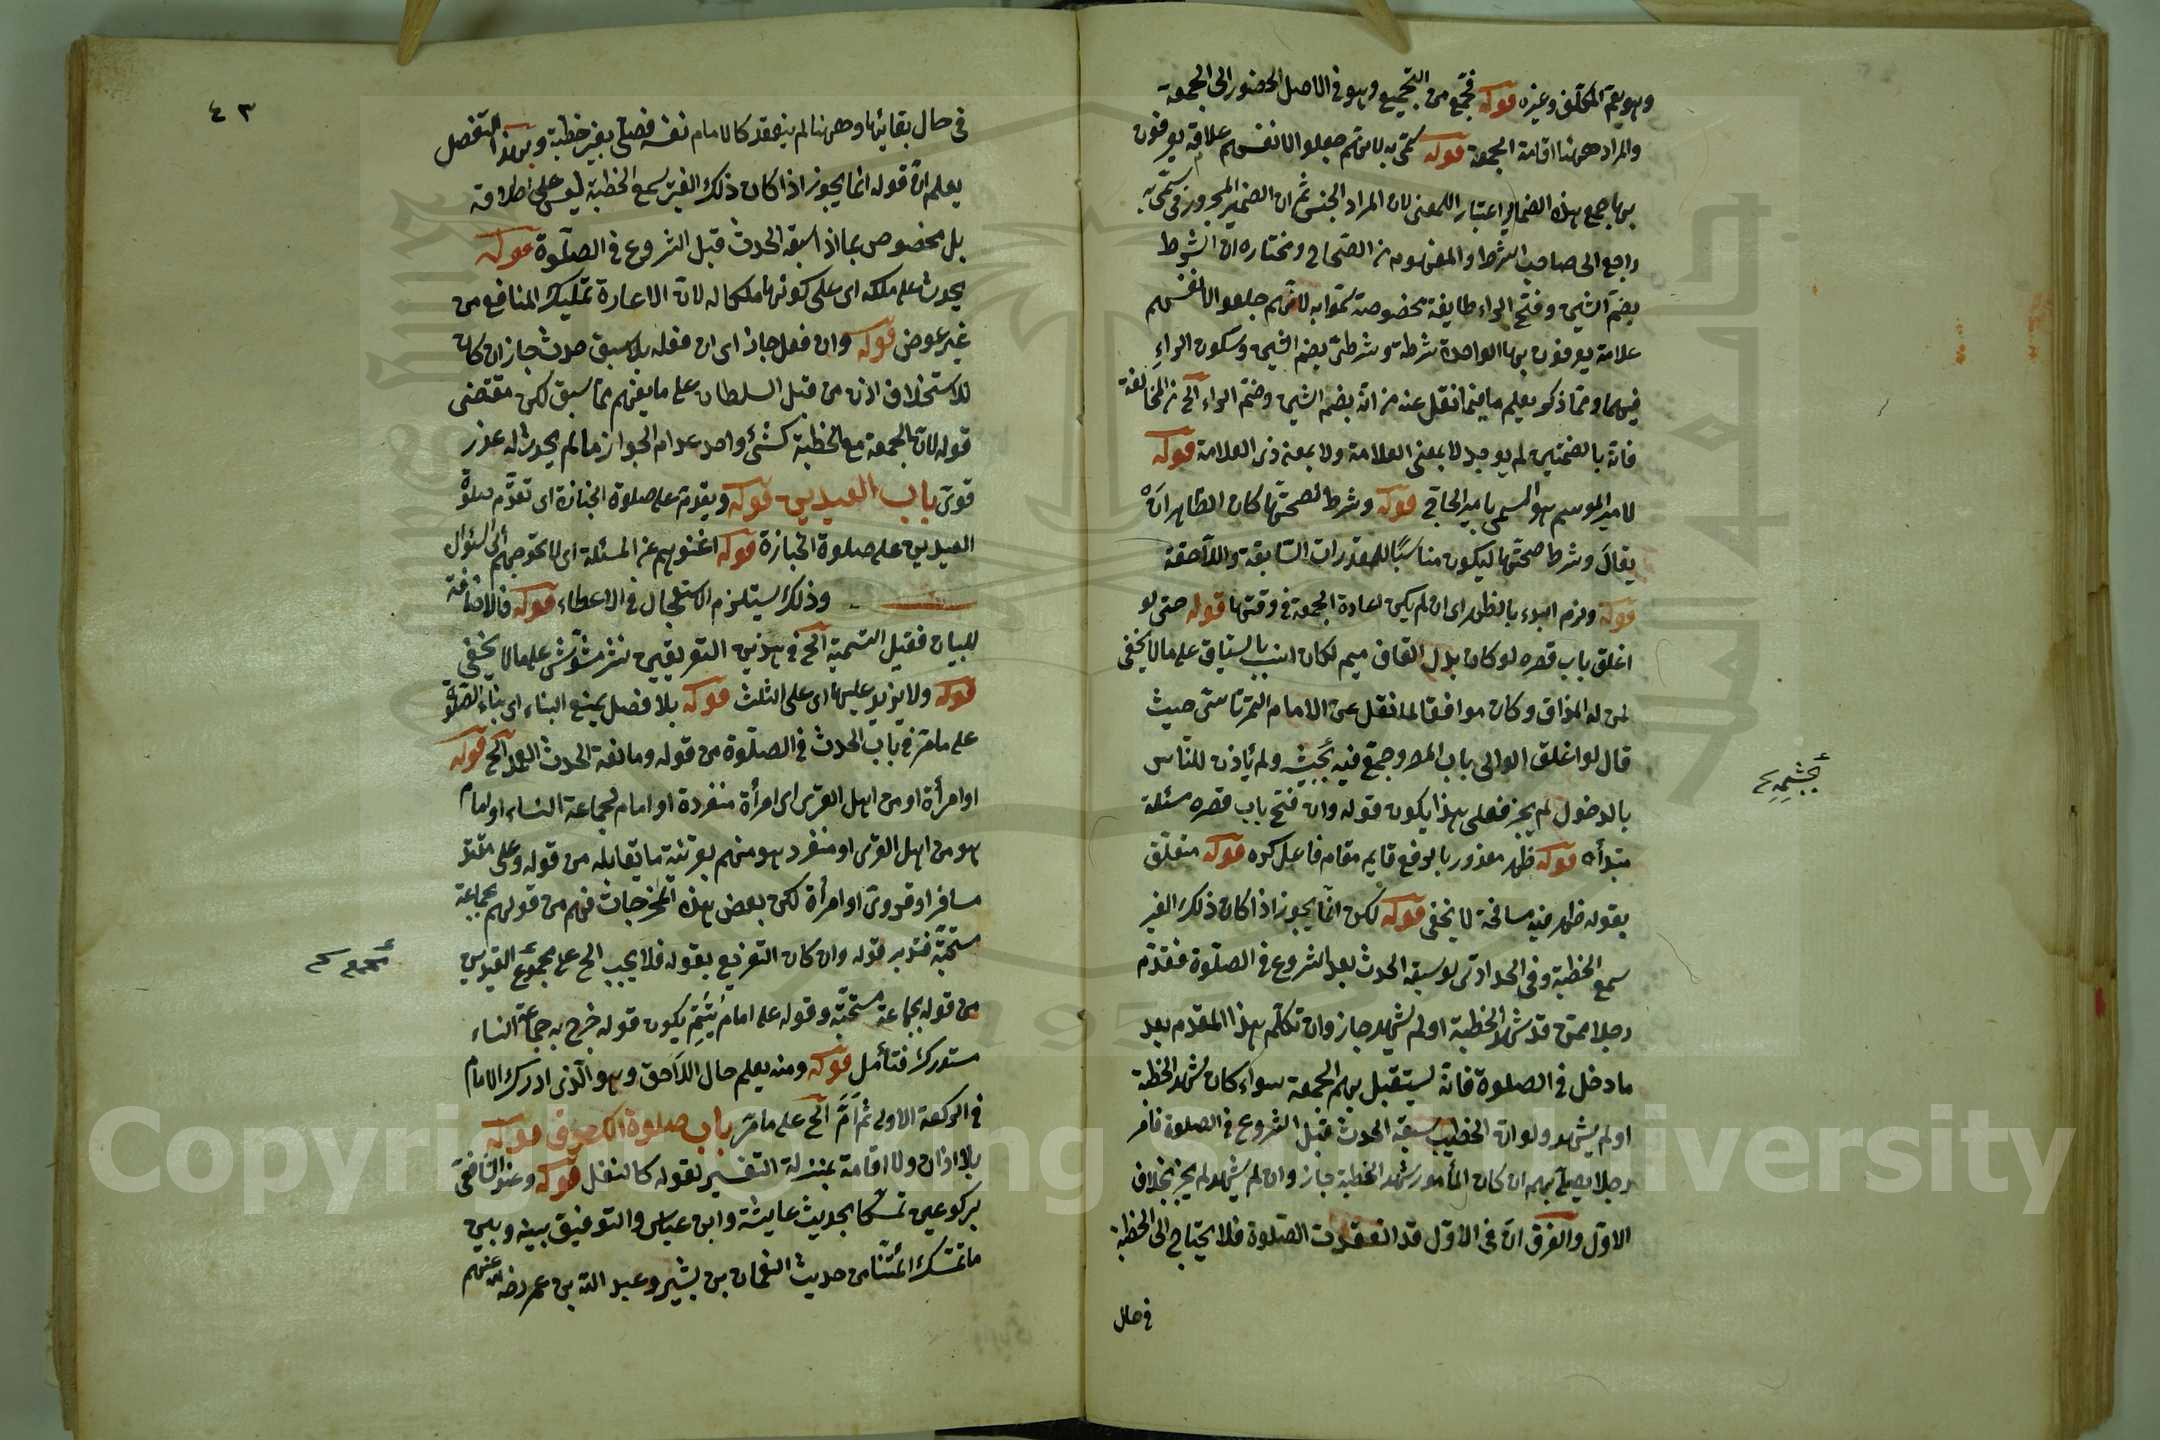 وهو يعم المكلف وغيره قوله فجمع من التجميع وهو في الاصل الحضور الى الجمعة
والمراد ههنا اقامة الجمعة قوله سمي به لانهم جعلوا لانفسهم علاقة يعرفون
بها جمع هذه الضماير اعتبار للمعنى لان المراد الجنس ثم ان الضمير المجرور في سمي به
راجع الى صاحب الشرط والمفهوم من الصحاح ومختاره ان الشرط
بضم الشين وفتح الراء طايفة مخصوصة سموا به لانهم جعلوا لانفسهم
علامة يعرفون بها الواحدة شرطة وشرطي بضم الشين وسكون الراء
فيهما ومما ذكر يعلم ما فيما نقل عنه من انه بضم الشين وضم الراء الخ من المخالفة
فانه بالضمتين لم يوجد لا بمعنى العلامة ولا بمعنى ذي العلامة قوله
لامير الموسم هو المسمى بامير الحاج قوله وشرط لصحتها كان الظاهر ان
يقال وشرط صحتها ليكون مناسبا للمقدرات السابقة واللاحقة
قوله ولزم البدء بالظهر اي ان لم يكن اعادة الجمعة في وقتها قوله حتى لو
اغلق باب قصره لو كان بدل القاف ميم لكان انسب بالسياق على ما لا يخفى
لمن له المذاق وكان موافقا لما نقل عن الامام التمرتاشي حيث
قال لو اغلق الوالي باب المصر وجمع فيه بحشمه ولم يأذن للناس
بالدخول لم يجز فعلى هذا يكون قوله وان فتح باب قصره مسئلة
مبتدأه قوله ظهر معذور بالرفع قايم مقام فاعل كره قوله متعلق
بقوله ظهر فيه مسامحة لا يخفى قوله لكن انما يجوز اذا كان ذلك الغير
سمع الخطبة وفي الحدادي لو سبقه الحدث بعد الشروع في الصلوة فقدم
رجلا ممن قد شهد الخطبة اولم يشهد جاز وان تكلم هذا المقدم بعد
ما دخل في الصلوة فانه يستقبل بهم الجمعة سواء كان شهد الخطبة
او لم يشهد ولو ان الخطيب سبقه الحدث قبل الشروع في الصلوة فامر
رجلا يصلي بهم ان كان المأمور شهد الخطبة جاز وان لم يشهد لم يجز بخلاف
الاول والفرق ان في الاول قد انعقدت الصلوة فلا يحتاج الى الخطبة
في حال
بحشمه صح
٤٣
في حال بقائها وههنا لم ينعقد كالامام نفسه فصلى بغير خطبة وبهذا التفصيل
يعلم ان قوله انما يجوز اذا كان ذلك الغير سمع الخطبة ليس على اطلاقه
بل مخصوص بما اذا سبقه الحدث قبل الشروع في الصلوة قوله
يحدث على ملكه اي على كونها ملكا له لان الاعارة تمليك المنافع من
غير عوض قوله وان فعل جاز اي ان فعله بلا سبق حدث جاز ان كان
للاستخلاف اذن من قبل السلطان على ما يفهم مما سبق لكن مقتضى
قوله لان الجمعة مع الخطبة كشئ واحد عدم الجواز ما لم يحدث له عذر
قوي باب العيدين قوله ويقدم على صلوة الجنازة اي تقدم صلوة
العيدين على صلوة الجنازة قوله اغنوهم عن المسئلة اي لا تحوجهم الى السؤال
وذلك يستلزم الاستعجال في الاعطاء قوله فالاضافة
للبيان فقيل التسمية الخ في هذين التعريفين نشر مشوش على ما لا يخفى
قوله ولا يزيد عليها اي على الثلث قوله بلا فصل يمنع البناء اي بناء الصلوة
على ما مر في باب الحدث في الصلوة من قوله ومانعه الحدث العمد الخ قوله
او امرأة او من اهل القرى اي امرأة منفردة او امام لجماعة النساء او امام
هو من اهل القرى او منفرد هو منهم بقرينة ما يقابله من قوله وعلى مقتد
مسافر او قروي او امرأة لكن بعض هذه المخرجات فهم من قولهم بجماعة
مستحبة فتدبر قوله وان كان التفريع بقوله فلا يجب الخ على مجموع القيدين
من قوله بجماعة مستحبة وقوله على امام يتمم يكون قوله خرج به جماعة النساء
مستدرك فتأمل قوله ومنه يعلم حال اللاحق وهو الذي ادرك الامام
في الركعة الاولى ثم نام الخ على ما مر باب صلوة الكسوف قوله
بلا اذان ولا اقامة بمنزلة التفسير لقوله كالنفل قوله وعند الشافعي
بركوعين تمسكا بحديث عايشة وابن عباس والتوفيق بينه وبين
ما تمسك ائمتنا من حديث النعمان بن بشير وعبد الله بن عمر رضي الله عنهم
مجموع صح
Copyright © King Saud University
جامعة الملك سعود
1957